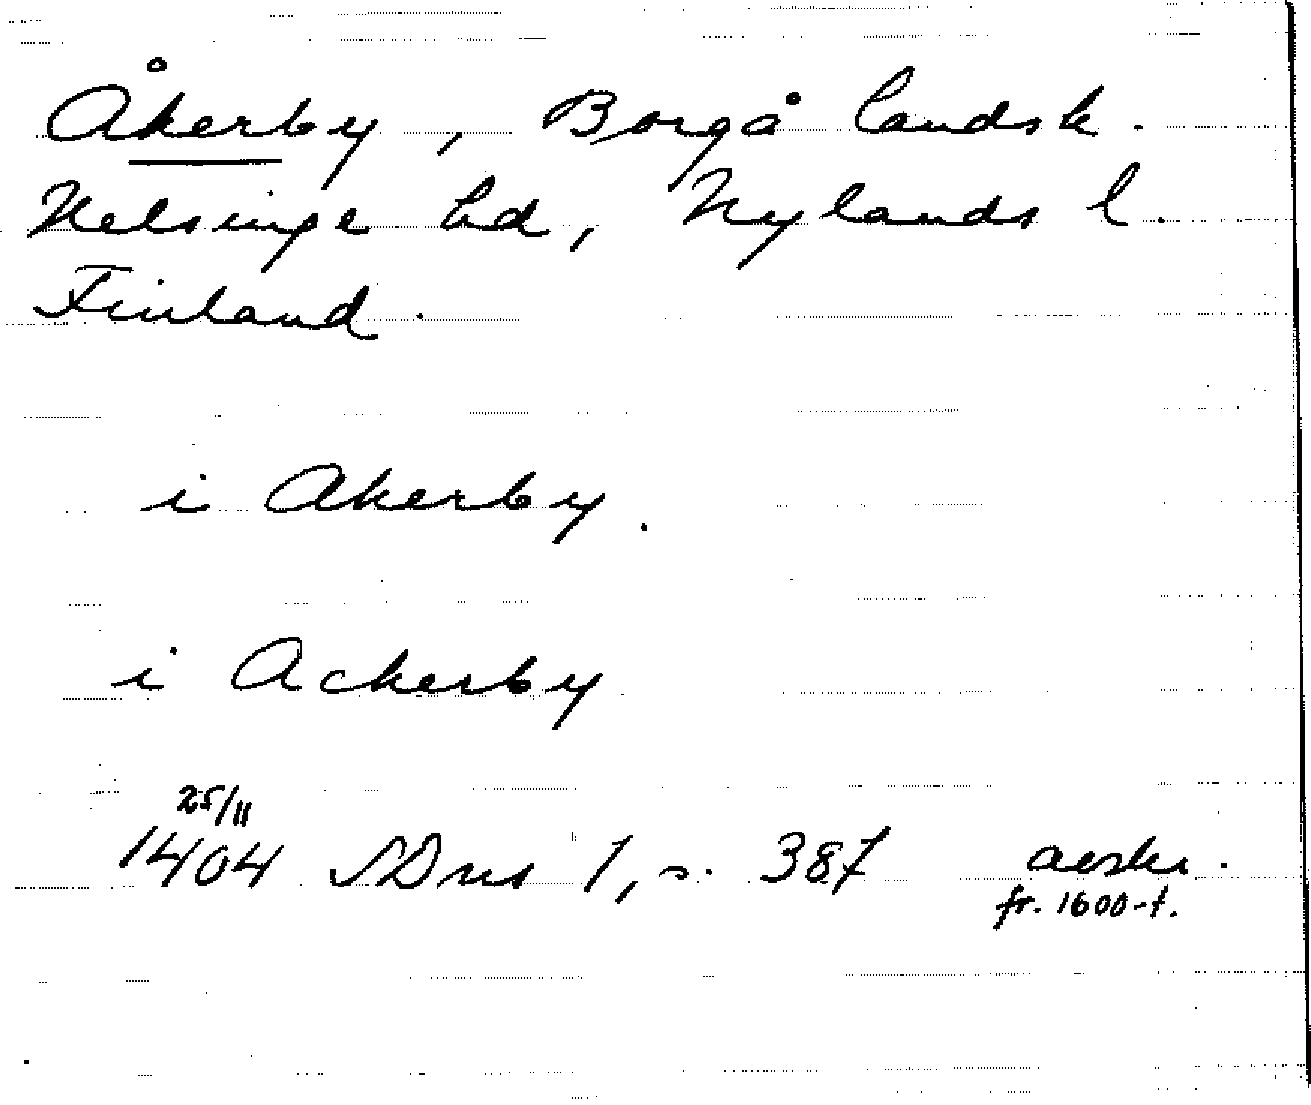 Åkerby, Borgå landsk.
Helsinge hd, Nylands l.
Finland.
i Akerby.
i Ackerby
25/11
1404 SDns 1, s. 387 avskr.
fr. 1600-t.